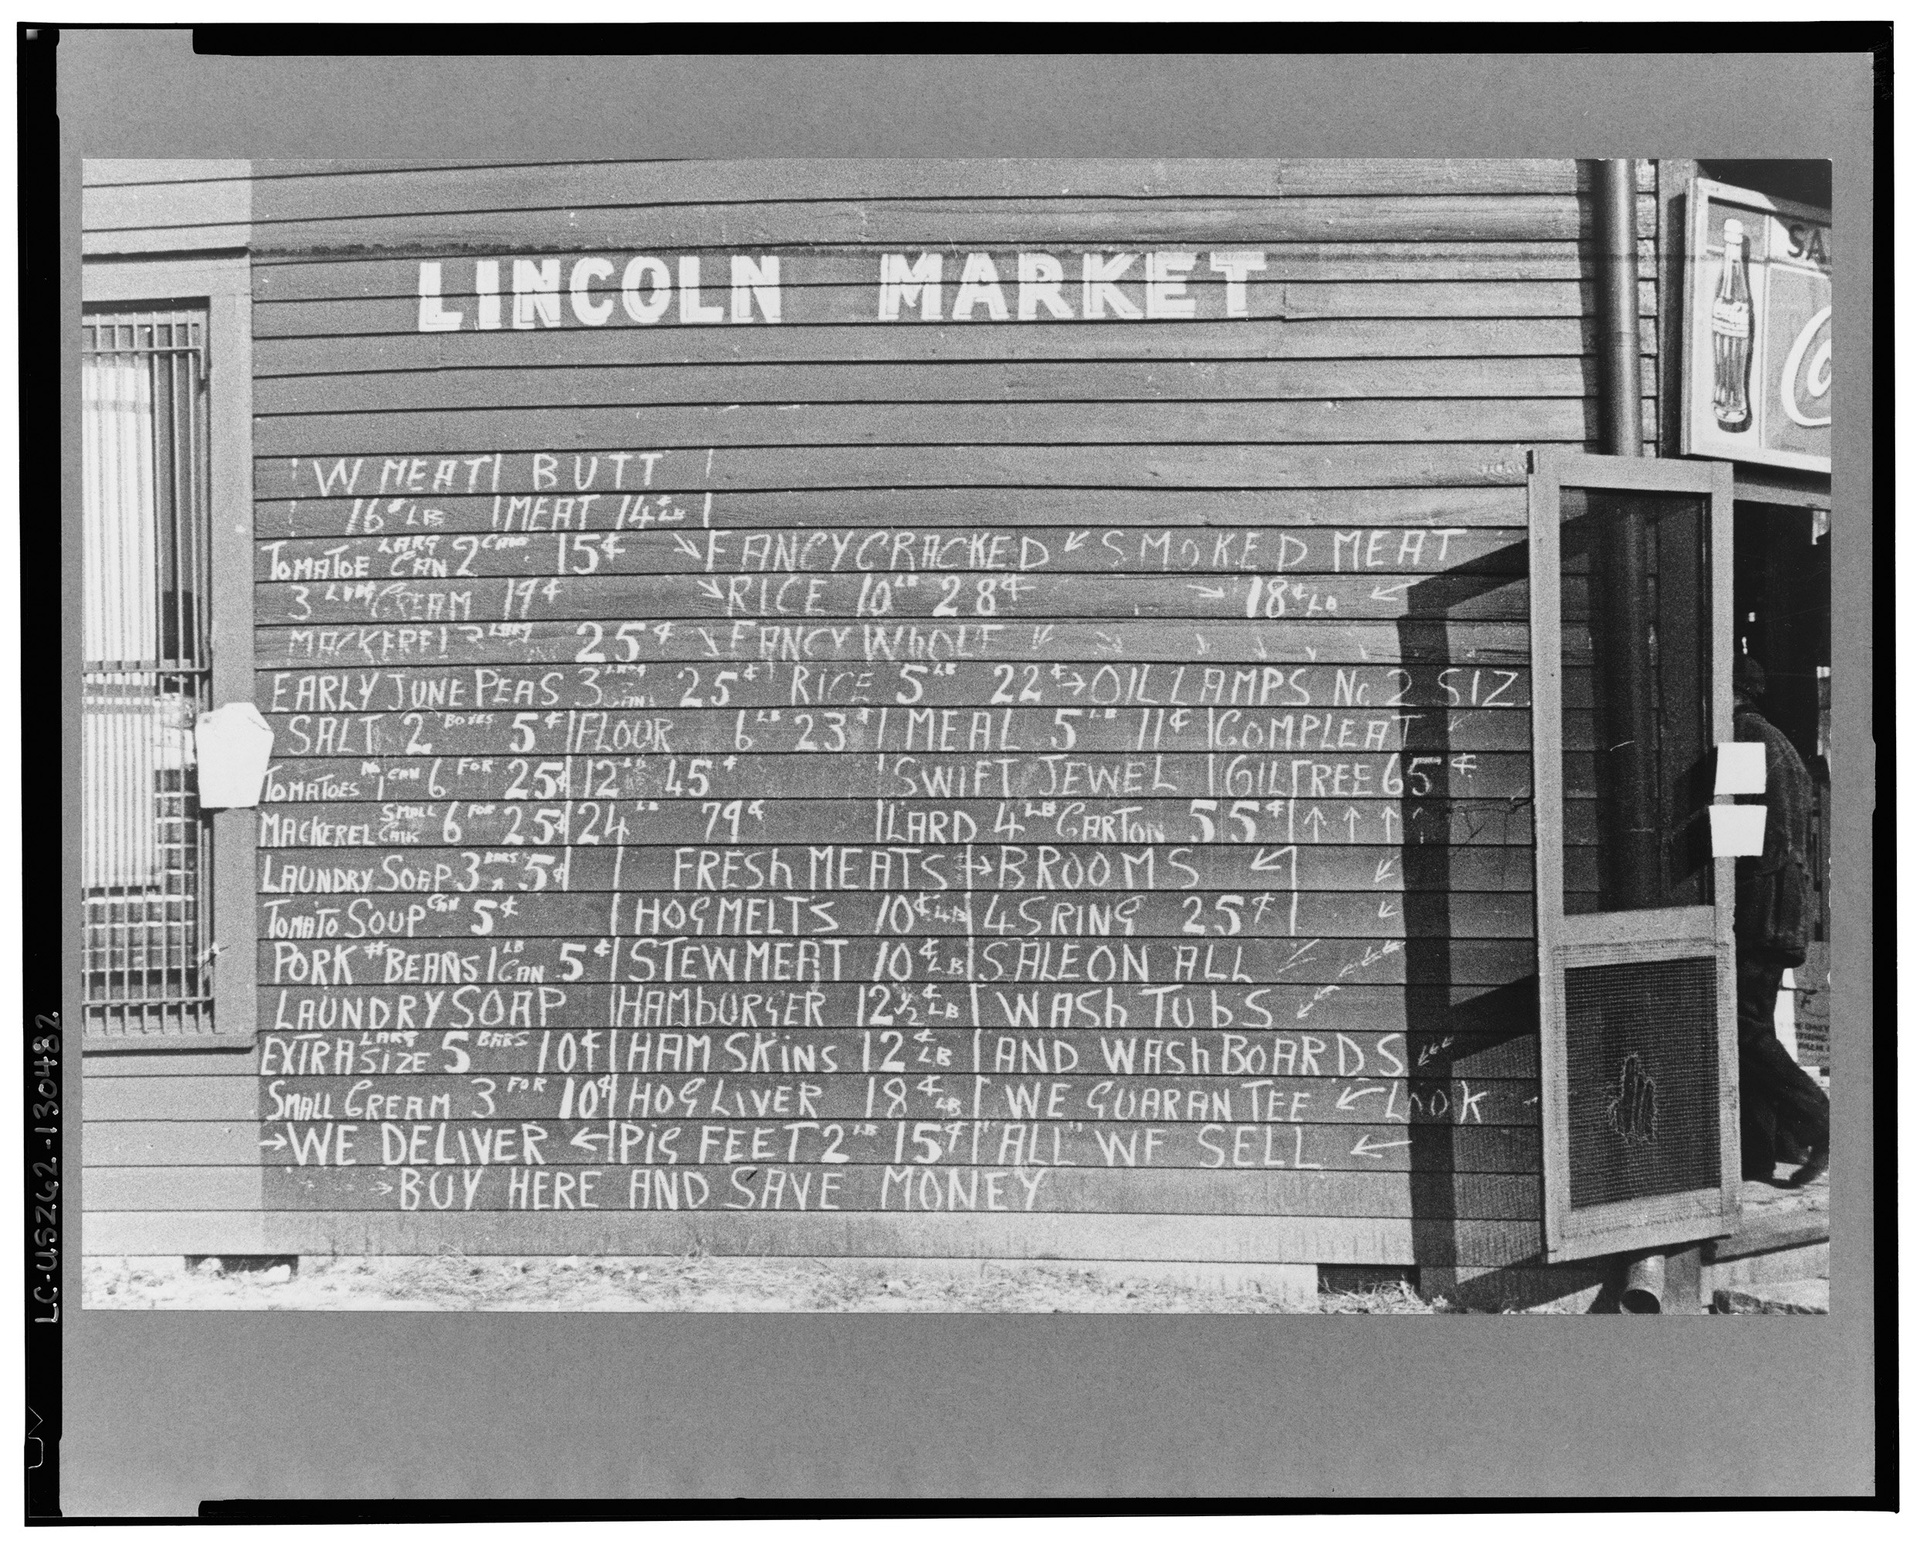 LINCOLN MARKET
W MEAT BUTT
16¢ LB MEAT 14¢ LB
TOMATOE LARG CAN 2 CANS 15¢ → FANCY CRACKED ← SMOKED MEAT
3 LARG CREAM 19¢ → RICE 10 LB 28¢ → 18¢ LB ←
MACKEREL 3 LARG 25¢ FANCY WHOLE
EARLY JUNE PEAS 3 LARG CANS 25¢ RICE 5 LB 22¢ → OIL LAMPS No. 2 SIZ
SALT 2 BOXES 5¢ FLOUR 6 LB 23¢ MEAL 5 LB 11¢ COMPLEAT
TOMATOES No 1 CAN 6 FOR 25¢ 12 LB 45¢ SWIFT JEWEL OIL FREE 65¢
MACKEREL SMALL CANS 6 FOR 25¢ 24 LB 79¢ LARD 4 LB CARTON 55¢ ↑ ↑ ↑ ↑
LAUNDRY SOAP 3 BARS 5¢ FRESH MEATS → BROOMS ←
TOMATO SOUP CAN 5¢ HOG MELTS 10¢ LB 4 SRING 25¢
PORK # BEANS 1 LB CAN 5¢ STEW MEAT 10¢ LB SALE ON ALL
LAUNDRY SOAP HAMBURGER 12 1/2¢ LB WASH TUBS
EXTRA LARG SIZE 5 BARS 10¢ HAM SKINS 12¢ LB AND WASH BOARDS
SMALL CREAM 3 FOR 10¢ HOG LIVER 18¢ LB WE GUARANTEE ← LOOK
→ WE DELIVER ← PIG FEET 2 LB 15¢ "ALL" WE SELL ←
→ BUY HERE AND SAVE MONEY
SA
Co
LC-USZ62-130482